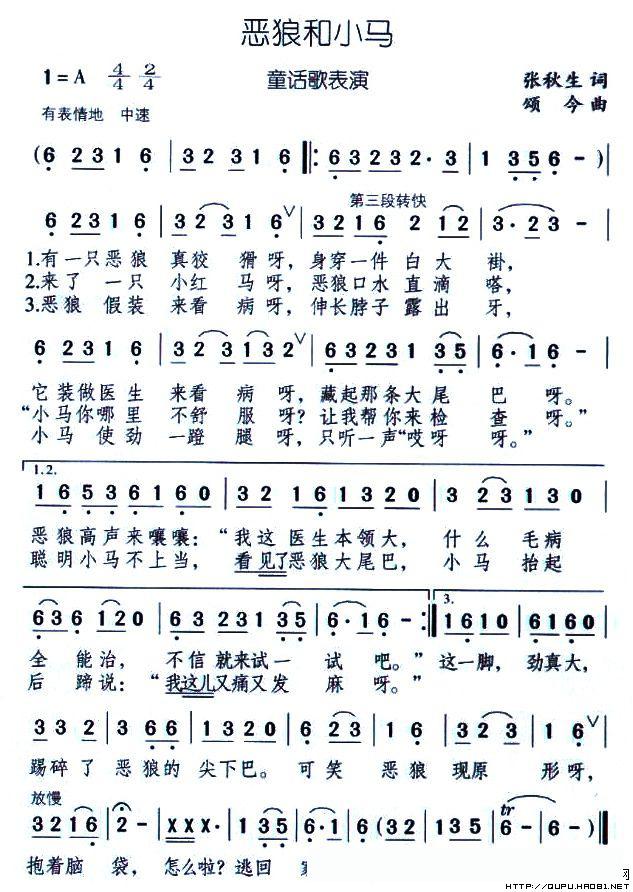 恶狼和小马
1=A 4/4 2/4 童话歌表演 张秋生 词
有表情地 中速 颂今曲
(6 2 3 1 6 | 3 2 3 1 6 |: 6 3 2 3 2· 3 | 1 3 5 6 - )|
第三段转快
6 2 3 1 6 | 3 2 3 1 6 V | 3 2 1 6 2 1 2 | 3· 2 3 - |
1.有一只恶狼 真狡 猾呀，身穿一件 白大 褂，
2.来了 一只 小红 马呀，恶狼口水 直滴 嗒，
3.恶狼 假装 来看 病呀，伸长脖子 露出 牙，
6 2 3 1 6 | 3 2 3 1 3 2 V | 6 3 2 3 1 3 5 | 6· 1 6 - |
它装做医生 来看 病呀，藏起那条大尾 巴 呀。
“小马你哪里 不舒 服呀？让我帮你来检 查 呀。”
小马 使劲 一蹬 腿呀，只听一声“哎呀 呀。”
1.2.
1 6 5 3 6 1 6 0 | 3 2 1 6 1 3 2 0 | 3 2 3 1 3 0 |
恶狼高声来嚷嚷：“我这 医生本领大，什么 毛病
聪明小马不上当，看见了恶狼大尾巴，小马 抬起
6 3 6 1 2 0 | 6 3 2 3 1 3 5 | 6· 1 6 - :| 3. 1 6 1 0 6 1 6 0 |
全 能治，不信就来试一 试 吧。”这一脚，劲真大，
后 蹄说：“我这儿又痛又发 麻 呀。”
3 1 3 | 3 6 6 | 1 3 2 | 1 6 | 3 2 3 | 1 6 V |
踢碎了 恶狼的 尖下巴。可笑 恶狼 现原 形呀，
放慢
3 2 1 6 | 2 - | X X X | 1 3 5 | 6· 1 | 6 (3 2 | 3 2 1 3 5 | tr 6 - | 6 - )‖
抱着脑 袋，怎么啦？逃回
HTTP://QUPU.HAO81.NET